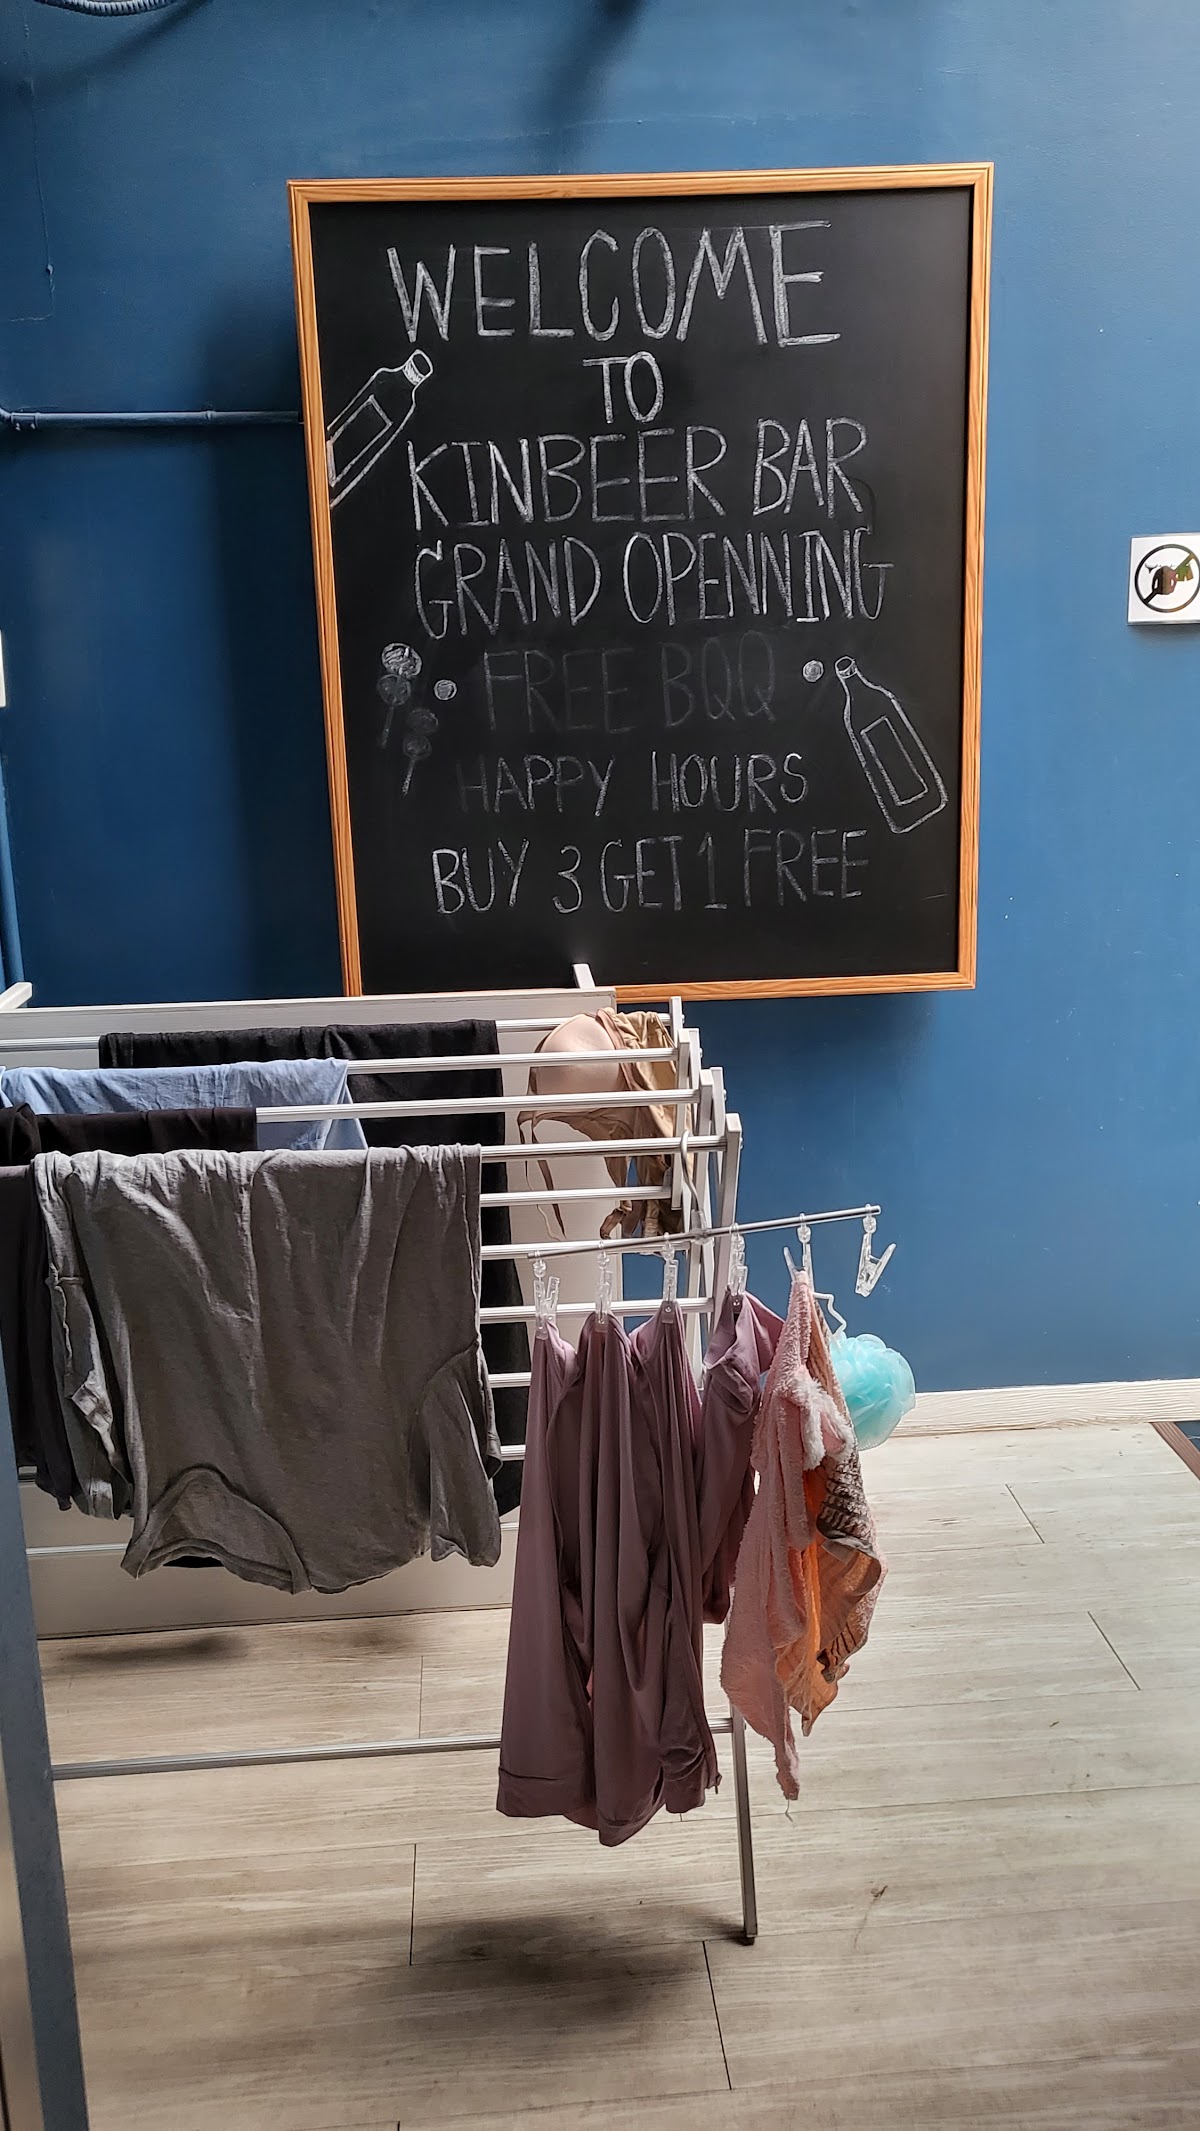 WELCOME
TO
KINBEER BAR
GRAND OPENNING
FREE BQQ
HAPPY HOURS
BUY 3 GET 1 FREE